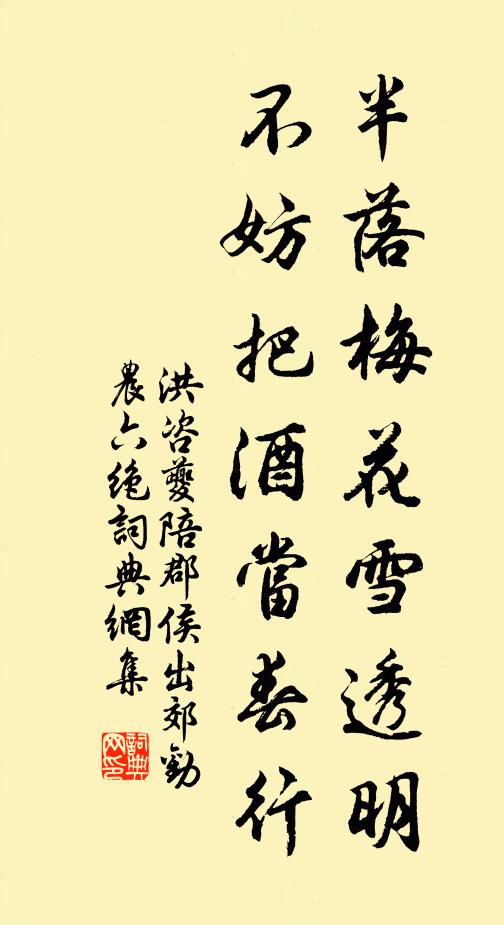 半落梅花雪透明
不妨把酒當春行
洪咨夔陪郡侯出郊勸
農六絶詞典網集
詞典
网印